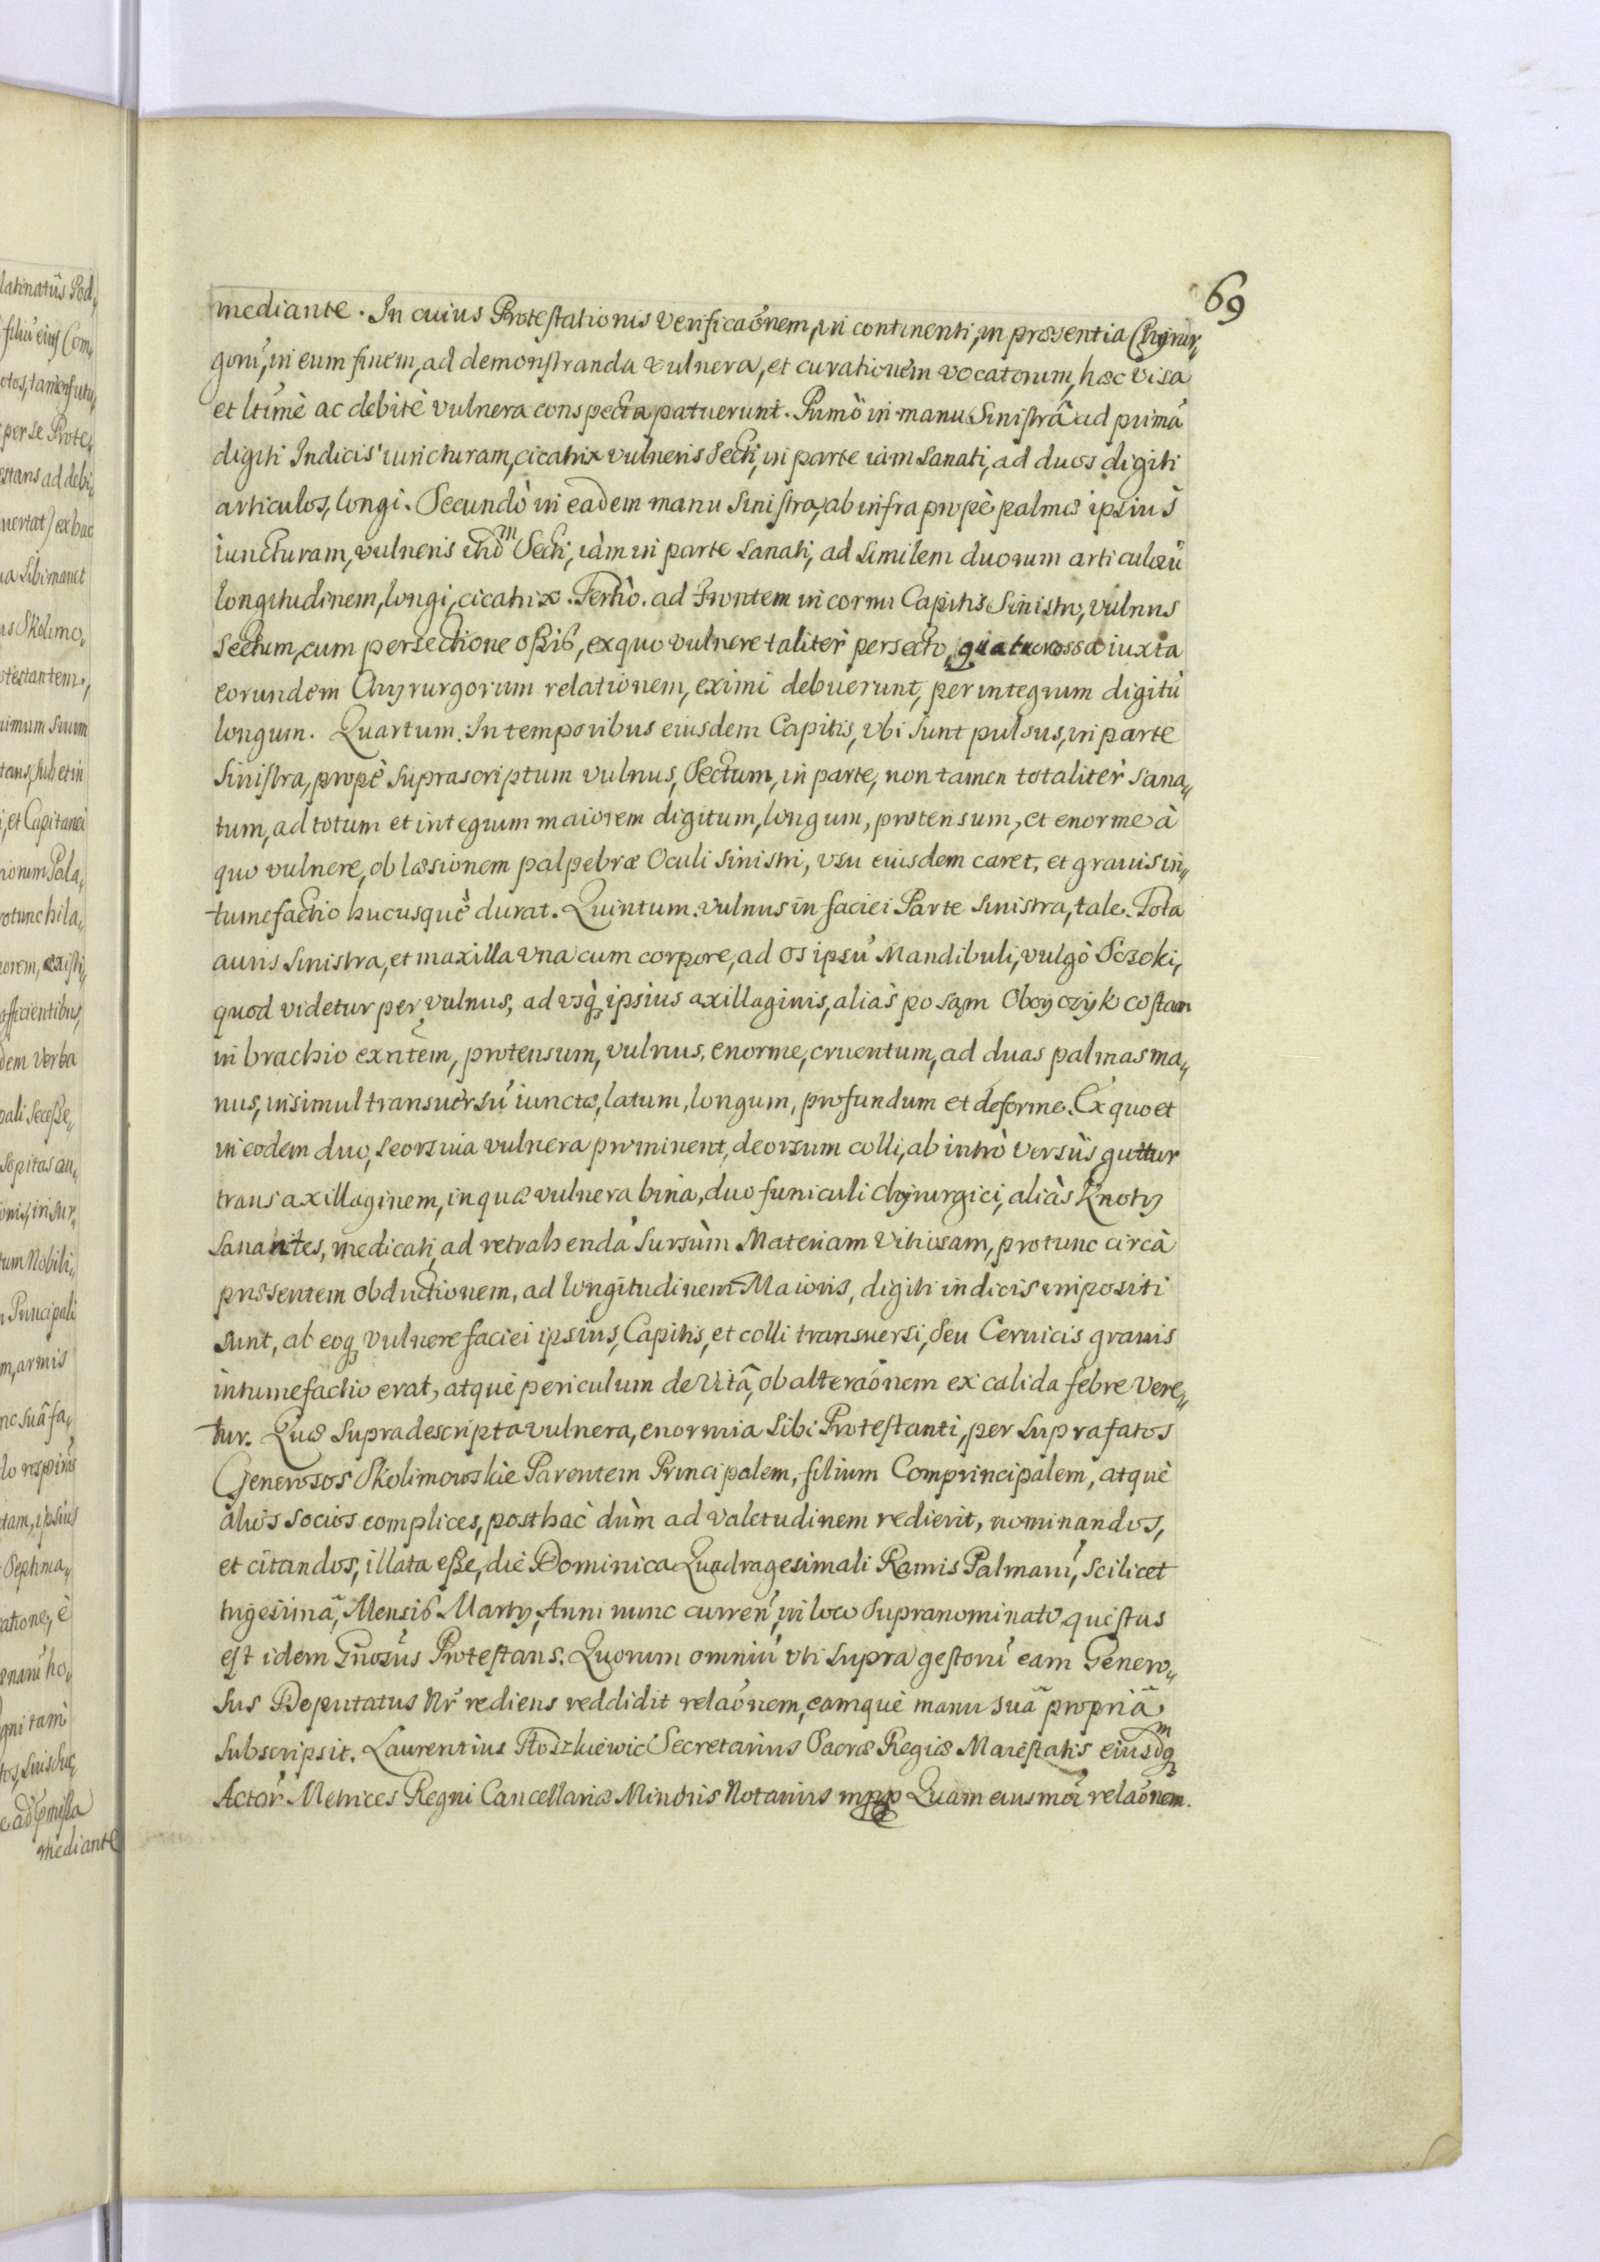 69
mediante. In cuius Protestationis verificaónem, in continenti, in præsentia Chyrur„
gorú, in eum finem, ad demonstranda vulnera, et curationem vocatorum, hæc visa
et ltimè ac debitè vulnera conspecta patuerunt. Primò in manu sinistrâ ad primá
digiti Indicis iuncturam, cicatrix vulneris secti, in parte iàm sanati, ad duos digiti
articulos, longi. Secundò in eadem manu sinistra, ab infra propè palmæ ipsius
iuncturam, vulneris itidm Secti, iàm in parte sanati, ad similem duorum articulorú
longitudinem, longi, cicatrix. Tertiò. ad Frontem in cornu Capitis Sinistro, vulnus
sectum, cum persectione ossis, ex quo vulnere taliter persecto, quatuor ossa iuxta
eorundem Chyrurgorum relationem, eximi debuerunt, per integrum digitú
longum. Quartum. In temporibus eiusdem Capitis, vbi sunt pulsus, in parte
sinistra, propè suprascriptum vulnus, Sectum, in parte, non tamen totaliter sana„
tum, ad totum et integrum maiorem digitum, longum, protensum, et enorme à
quo vulnere, ob læsionem palpebræ Oculi sinistri, vsu eiusdem caret, et grauis in„
tumefactio hucusquè durat. Quintum. vulnus in faciei Parte sinistra, tale. Tota
auris sinistra, et maxilla vna cum corpore, ad os ipsú Mandibuli, vulgò Sczoki,
quod videtur per vulnus, ad vsq ipsius axillaginis, alias po sąm Oboyczyk costam
in brachio exñtem, protensum, vulnus, enorme, cruentum, ad duas palmas ma„
nus, insimul transuersú iunctæ, latum, longum, profundum et deforme. Ex quo et
in eodem duo, seorsiua vulnera prominent, deorsum colli, ab intrò versùs guttur
trans axillaginem, in quæ vulnera bina, duo funiculi chyrurgici, aliàs Knoty
sanantes, medicati, ad retrahendá sursùm Materiam vitiosam, pro tunc circà
præsentem obductionem, ad longitudinem Maioris, digiti indicis impositi
sunt, ab eoq vulnere faciei ipsius, Capitis, et colli transuersi, seu Ceruicis grauis
intumefactio erat, atquè periculum de Vitâ, ob alteraónem ex calida febre vere„
tur. Quæ supradescripta vulnera, enormia sibi Protestanti, per suprafatos
Generosos Skolimowskie Parentem Principalem, filium Comprincipalem, atquè
alios socios complices, posthac dùm ad valetudinem redierit, nominandos,
et citandos, illata esse, die Dominica Quadragesimali Ramis Palmarú, scilicet
trigesimâ, Mensis Marty, Anni nunc curren', in loco supranominato questus
est idem Gnosus Protestans. Quorum omniú vti supra gestorú eam Genero„
sus Deputatus Nr rediens reddidit relaónem, eamquè manu suâ propriâ
subscripsit. Laurentius Stodzkiewic Secretarius Sacræ Regiæ Maiestatis eiusdmq
Actor' Metrices Regni Cancellariæ Minoris Notarius mpp Quam eiusmoi relaónem.